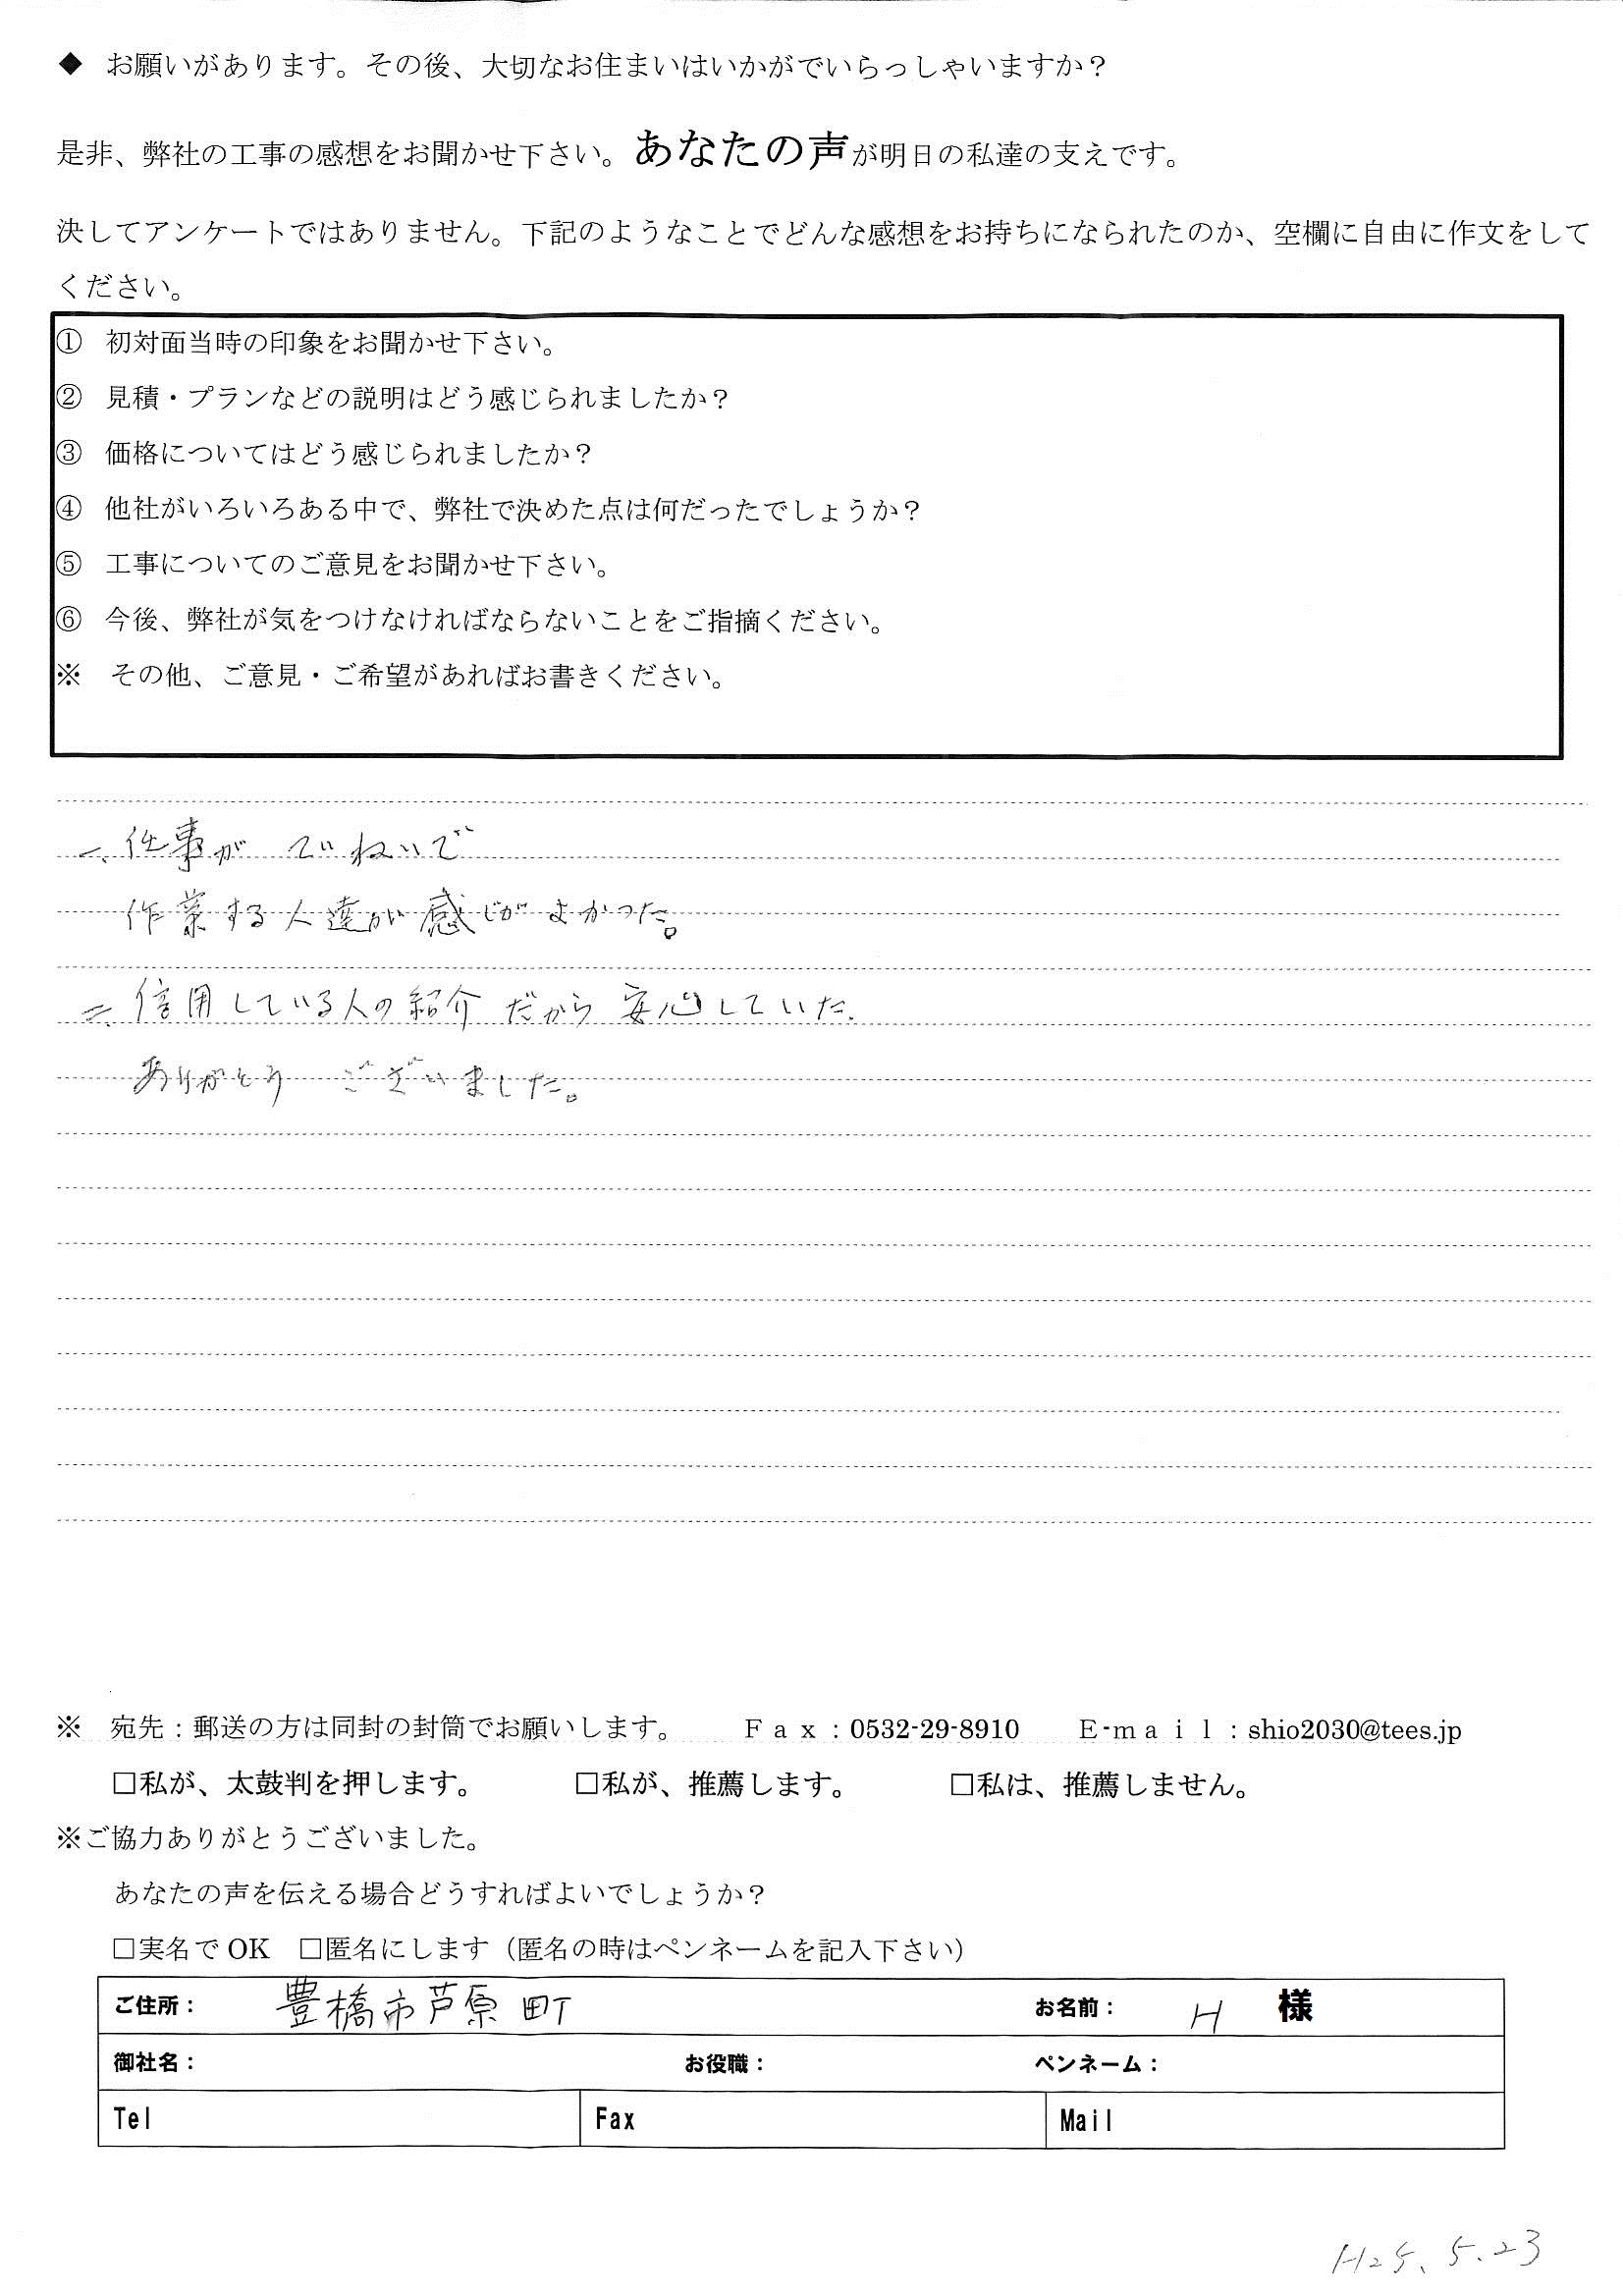 ◆ お願いがあります。その後、大切なお住まいはいかがでいらっしゃいますか？
是非、弊社の工事の感想をお聞かせ下さい。あなたの声が明日の私達の支えです。
決してアンケートではありません。下記のようなことでどんな感想をお持ちになられたのか、空欄に自由に作文をして
ください。
① 初対面当時の印象をお聞かせ下さい。
② 見積・プランなどの説明はどう感じられましたか？
③ 価格についてはどう感じられましたか？
④ 他社がいろいろある中で、弊社で決めた点は何だったでしょうか？
⑤ 工事についてのご意見をお聞かせ下さい。
⑥ 今後、弊社が気をつけなければならないことをご指摘ください。
※ その他、ご意見・ご希望があればお書きください。
一、仕事が ていねいで
作業する人達が感じがよかった。
二、信用している人の紹介だから安心していた.
ありがとう ございました。
※ 宛先：郵送の方は同封の封筒でお願いします。 Ｆａｘ：0532-29-8910 Ｅ-ｍａｉｌ：shio2030@tees.jp
□私が、太鼓判を押します。 □私が、推薦します。 □私は、推薦しません。
※ご協力ありがとうございました。
あなたの声を伝える場合どうすればよいでしょうか？
□実名で OK □匿名にします（匿名の時はペンネームを記入下さい）
ご住所： 豊橋市芦原町 お名前： H 様
御社名： お役職： ペンネーム：
Tel Fax Mail
H25、5.23